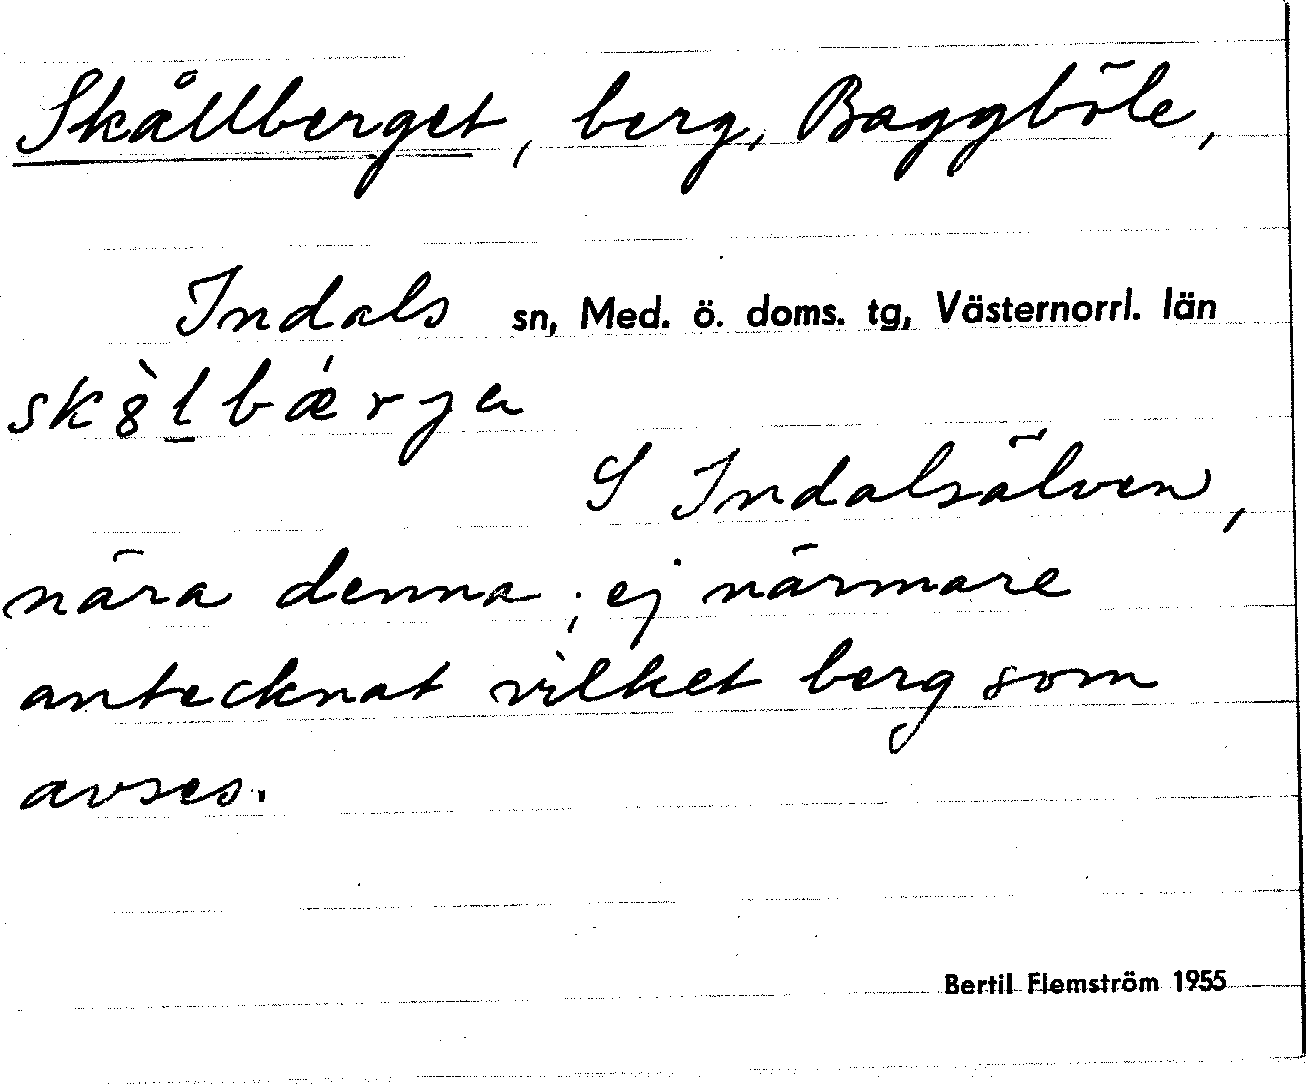 Skållberget, berg, Baggböle,
Indals sn, Med. ö. doms. tg, Västernorrl. län
sk8̀l̲bǽrjа
S Indalsälven,
nära denna; ej närmare
antecknat vilket berg som
avses.
Bertil Flemström 1955